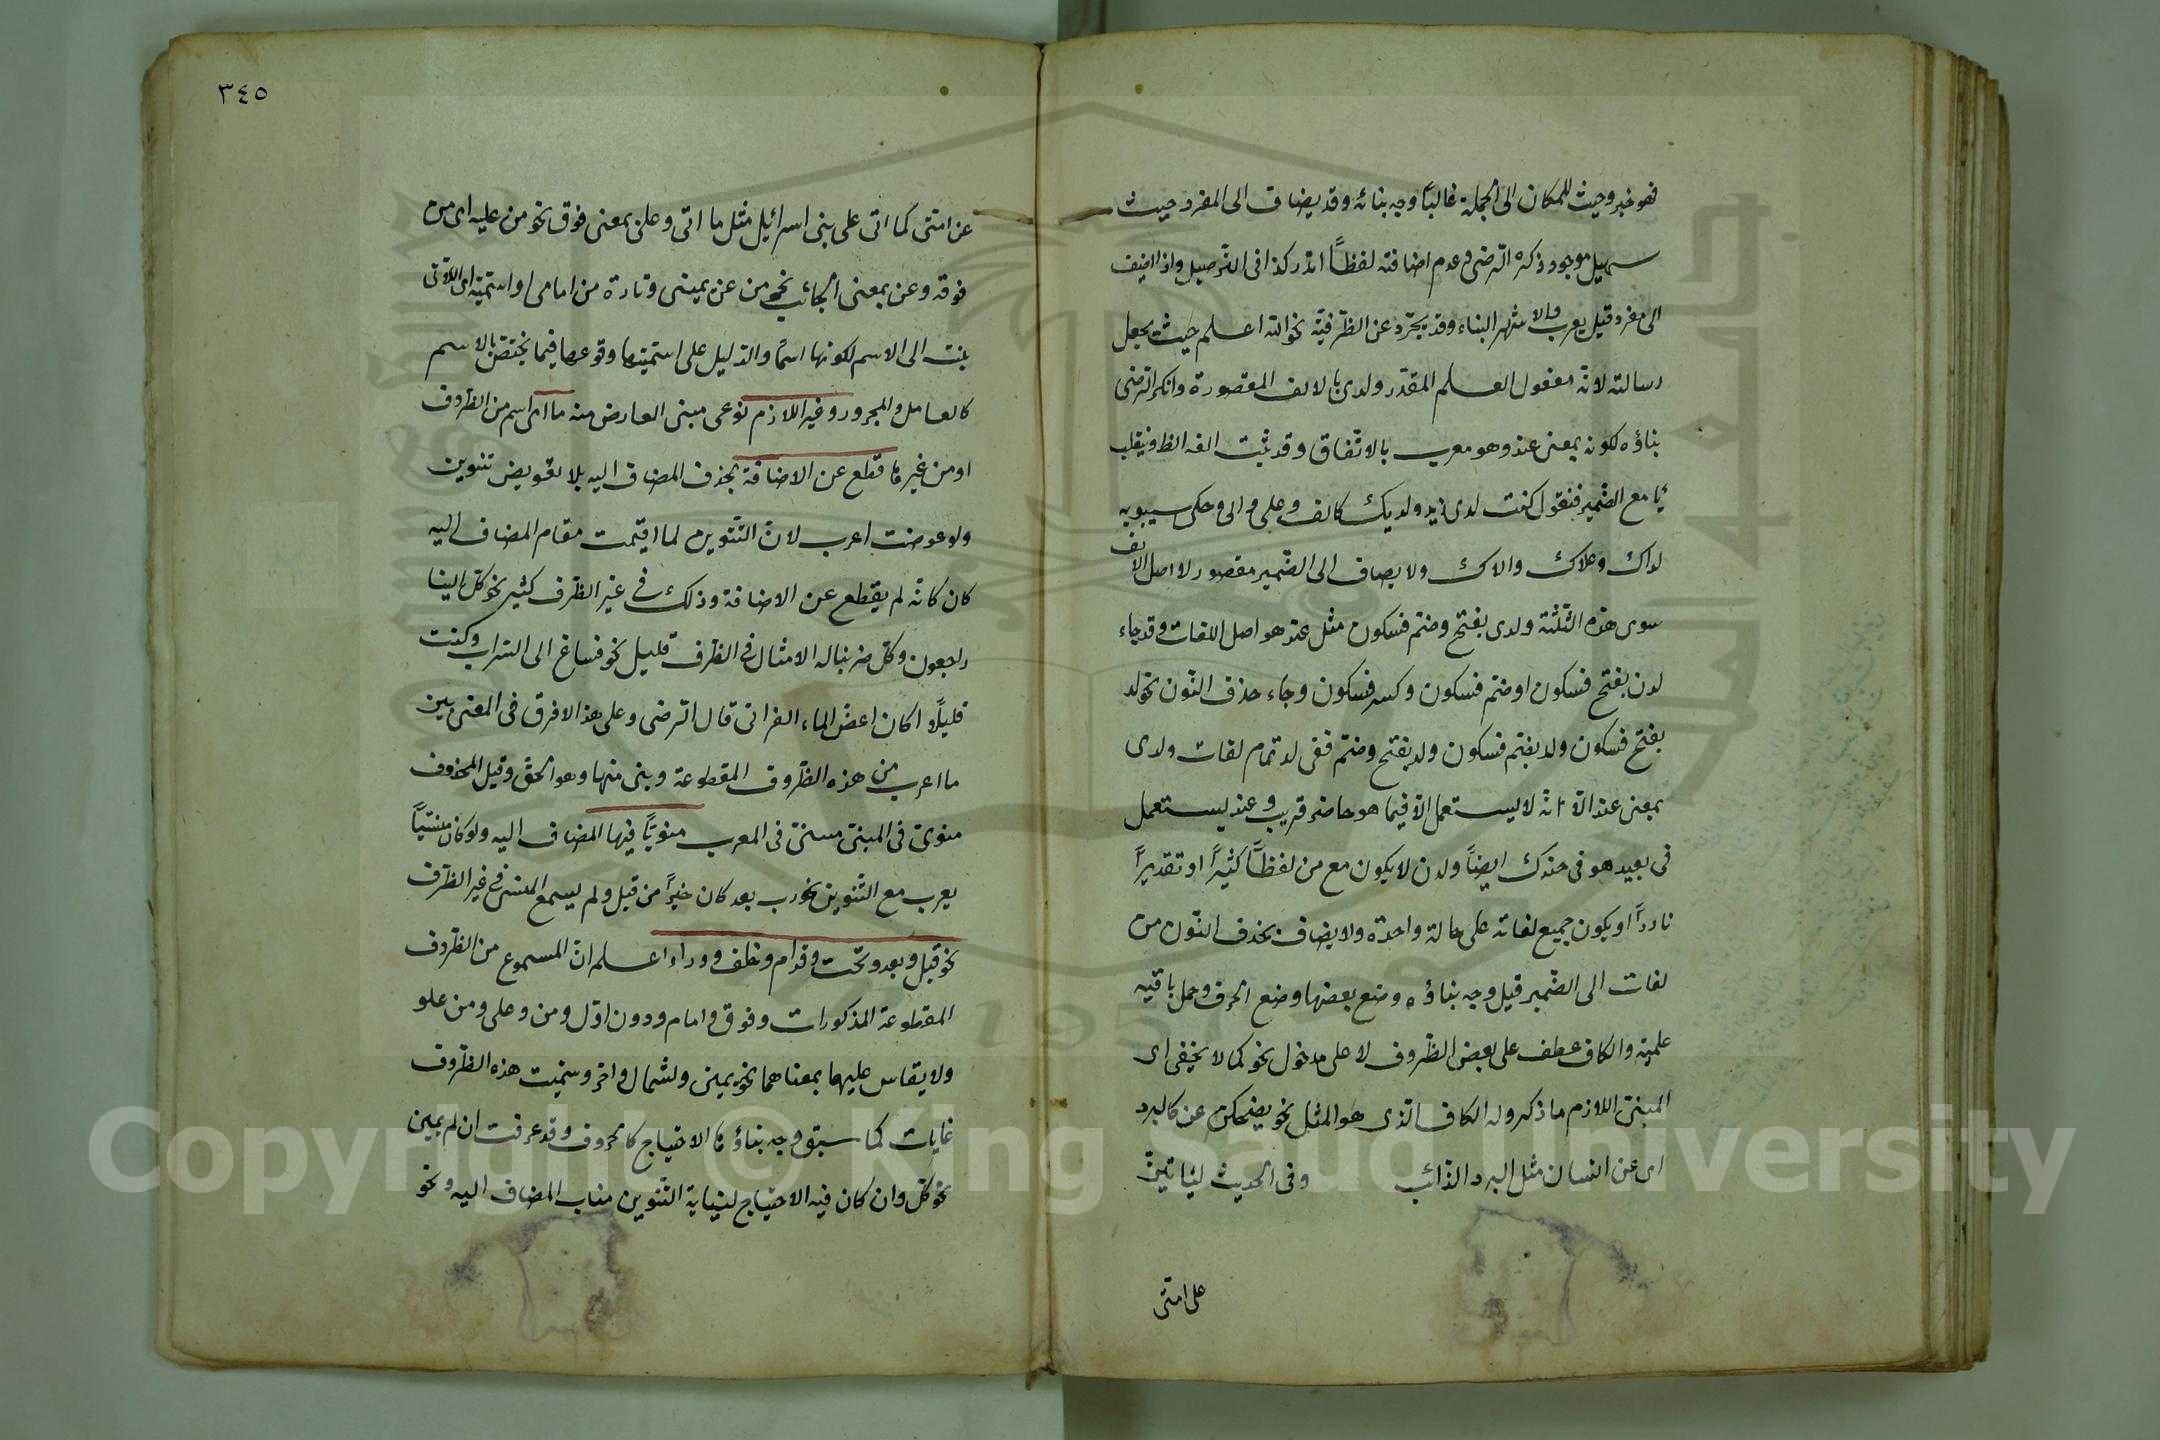 فهو غير وحيث للمكان الى الجملة غالبًا وجه بنائه وقد يضاف الى المفرد حيث
سهيل موجود ذكره الرضى وعدم اضافته لفظًا اندر كذا فى التسهيل واذا اضيف
الى مفرد قيل يعرب والاشهر البناء وقد يجرّد عن الظرفيّة نحو الله اعلم حيث يجعل
رسالته لانّه مفعول العلم المقدّر ولدى بالالف المقصورة وانكر الرضى
بناؤه لكونه بمعنى عند وهو معرب بالاتفاق وقد ثبت الفه الظ وينقلب
يًا مع الضمير فنقول كنت لدى زيد ولديك كالف وعلى والى وحكى سيبويه
لداك وعلاك والاك ولا يضاف الى الضمير مقصور لا اصل الالف
سوى هذه الثلثة ولدى بفتح وضم فسكون مثل عند هو اصل اللغات وقد جاء
لدن بفتح فسكون او ضم فسكون وكسر فسكون وجاء حذف النّون نحو لد
بفتح فسكون ولد بضم فسكون ولد بفتح وضم ففى لد تمام لغات ولدى
بمعنى عند الّا انّه لا يستعمل الّا فيما هو حاضر قريب وعند يستعمل
فى بعيد هو فى حنذك ايضًا ولدن لا يكون مع من لفظًا كثيرًا او تقديرًا
نادرًا ويكون جميع لغاته على حالة واحدة ولا يضاف بحذف النّون من
لغات الى الضمير قيل وجه بناؤه وضع بعضها وضع الحرف وحمل باقيه
عليه والكاف عطف على بعض الظروف لا على مدخول نحو كما لا يخفى اى
المبنىّ اللازم ما ذكر وله الكاف الّذى هو المثل نحو يضحكن عن كالبرد
اى عن انسان مثل البرد الذائب وفى الحديث ليأتينّ
على امتى
٣٤٥
عن امتى كما اتى على بنى اسرائيل مثل ما اتى وعلى بمعنى فوق نحو من عليه اى من
فوقه وعن بمعنى الجانب نحو من عن يمينى وتارة من امامى واسميّة اى اللاتى
بنت الى الاسم لكونها اسمًا والدليل على اسميتها وقوعها فيما يختصّ بالاسم
كالعامل والمجرور وغير اللازم نوعى مبنى العارض منه ما اى اسم من الظروف
او من غير ما قطع عن الاضافة بحذف المضاف اليه بلا تعويض تنوين
ولو عوضت اعرب لانّ التنوين لما اقيمت مقام المضاف اليه
كان كانّه لم يقطع عن الاضافة وذلك فى غير الظرف كثير نحو كل الينا
راجعون وكلّ ضربنا له الامثال فى الظرف قليل نحو فساغ الى الشراب وكنت
قليلًا اكان اغصّ الماء الفراتى قال الرضى وعلى هذا لا فرق فى المعنى بين
ما اعرب من هذه الظروف المقطوعة وبنى منها وهو الحقّ وقيل المحذوف
منوىّ فى المبنىّ منسىّ فى المعرب منويًّا فيها المضاف اليه ولو كان منسيًّا
يعرب مع التنوين نحو رب بعد كان خيرًا من قبل ولم يسمع المنسى فى غير الظرف
نحو قبل وبعد وتحت وقدام وخلف ووراء اعلم انّ المسموع من الظروف
المقطوعة المذكورات وفوق وامام ودون اوّل ومن وعلى ومن علو
ولا يقاس عليها بمعناهما نحو يمين وشمال واخر وسمّيت هذه الظروف
غايات كما سبق وجه بناؤ ما الاحتياج كالحروف وقد عرفت ان لم يبين
نحو كلّ وان كان فيه الاحتياج لنيابة التنوين مناب المضاف اليه ونحو
Copyright © King Saud University